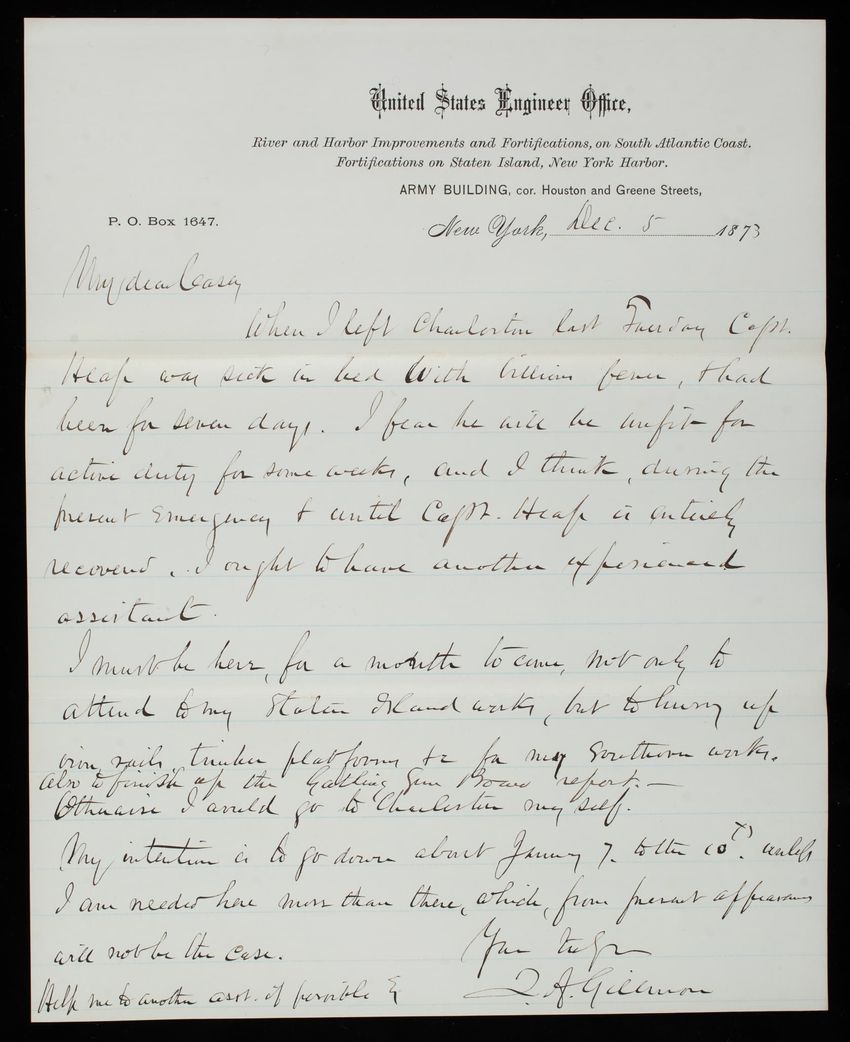 United States Engineer Office,
River and Harbor Improvements and Fortifications, on South Atlantic Coast.
Fortifications on Staten Island, New York Harbor.
ARMY BUILDING, cor. Houston and Greene Streets,
P. O. Box 1647.
New York, Dec. 5 1873
My dear Casey
When I left Charleston last Tuesday Capt.
Heap was sick in bed with billious fever, & had
been for seven days. I fear he will be unfit for
active duty for some weeks, and I think, during the
present emergency & until Capt. Heap is entirely
recovered, I ought to have another experienced
assistant.
I must be here, for a month to come, not only to
attend to my Staten Island works, but to hurry up
iron rails, timber platforms &c for my Southern works.
Also to finish up the Gatling Gun Board report.—
Otherwise I would go to Charleston myself.
My intention is to go down about January 7. to the 10th. unless
I am needed here more than there, which, from present appearances
will not be the case.
Yours truly
Q. A. Gillmore
Help me to another asst. if possible